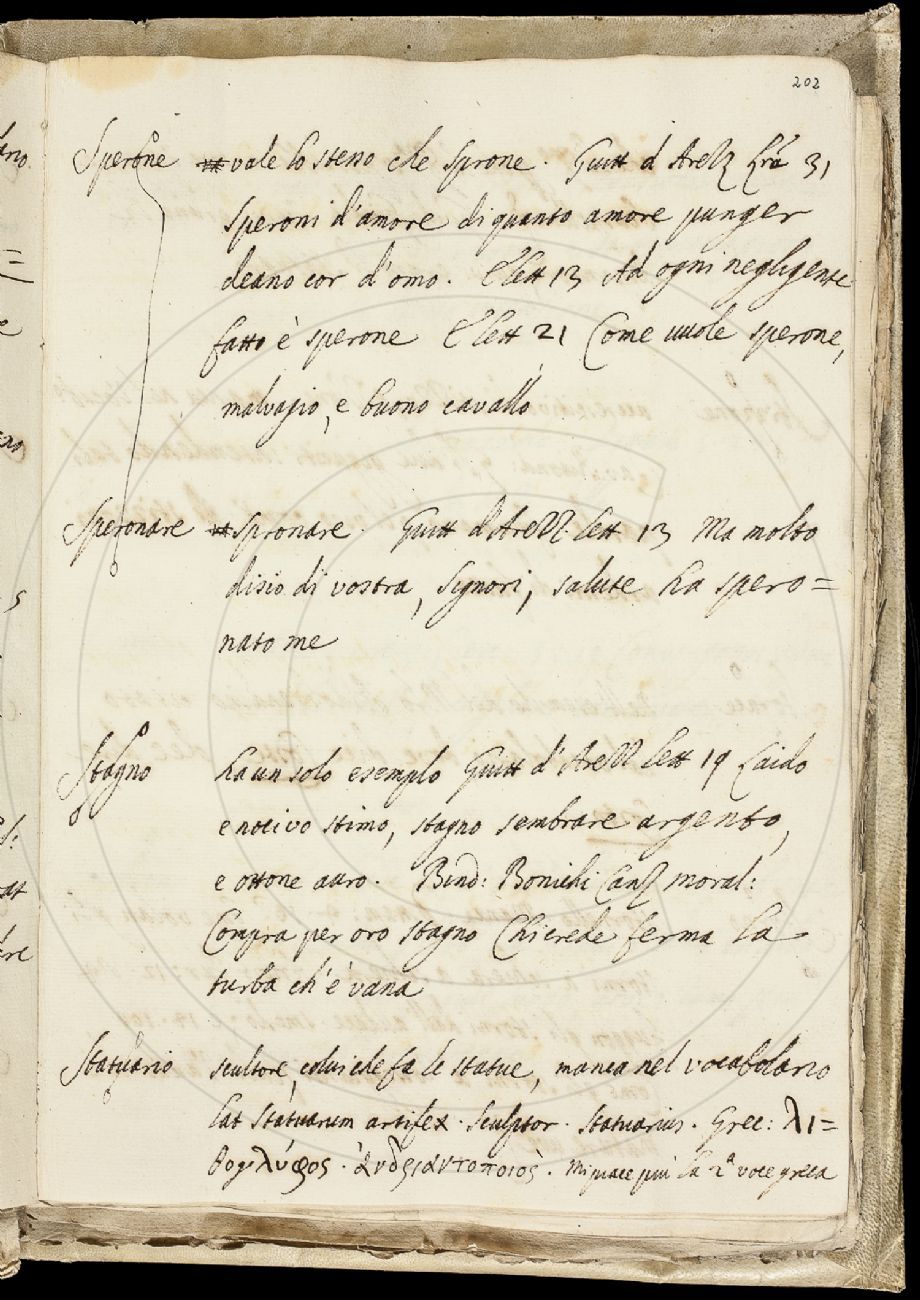 202
Sperone vale lo stesso che sprone. Guitt d'Arezz lra 31
speroni d'amore di quanto amore punger
deano cor d'omo. E lett 13 Ad ogni negligente
fatto è sperone E lett 21 Come vuole sperone,
malvagio, e buono cavallo
Speronare spronare. Guitt d'Arezz. lett 13 Ma molto
disio di vostra, Signori, salute ha spero=
nato me
Stagno ha un solo esemplo Guitt d'Arezz lett 19 Laido
e nocivo stimo, stagno sembrare argento,
e ottone auro. Bind: Bonichi Canz moral:
Compra per oro stagno Chi crede ferma la
turba ch'è vana
Statuario scultore, colui che fa le statue, manca nel vocabolario
lat Statuarum artifex. Sculptor. Statuarius. Grec: λι=
θογλύφος. ἀνδριαντοποιός. Mi piace più la 2ª voce greca